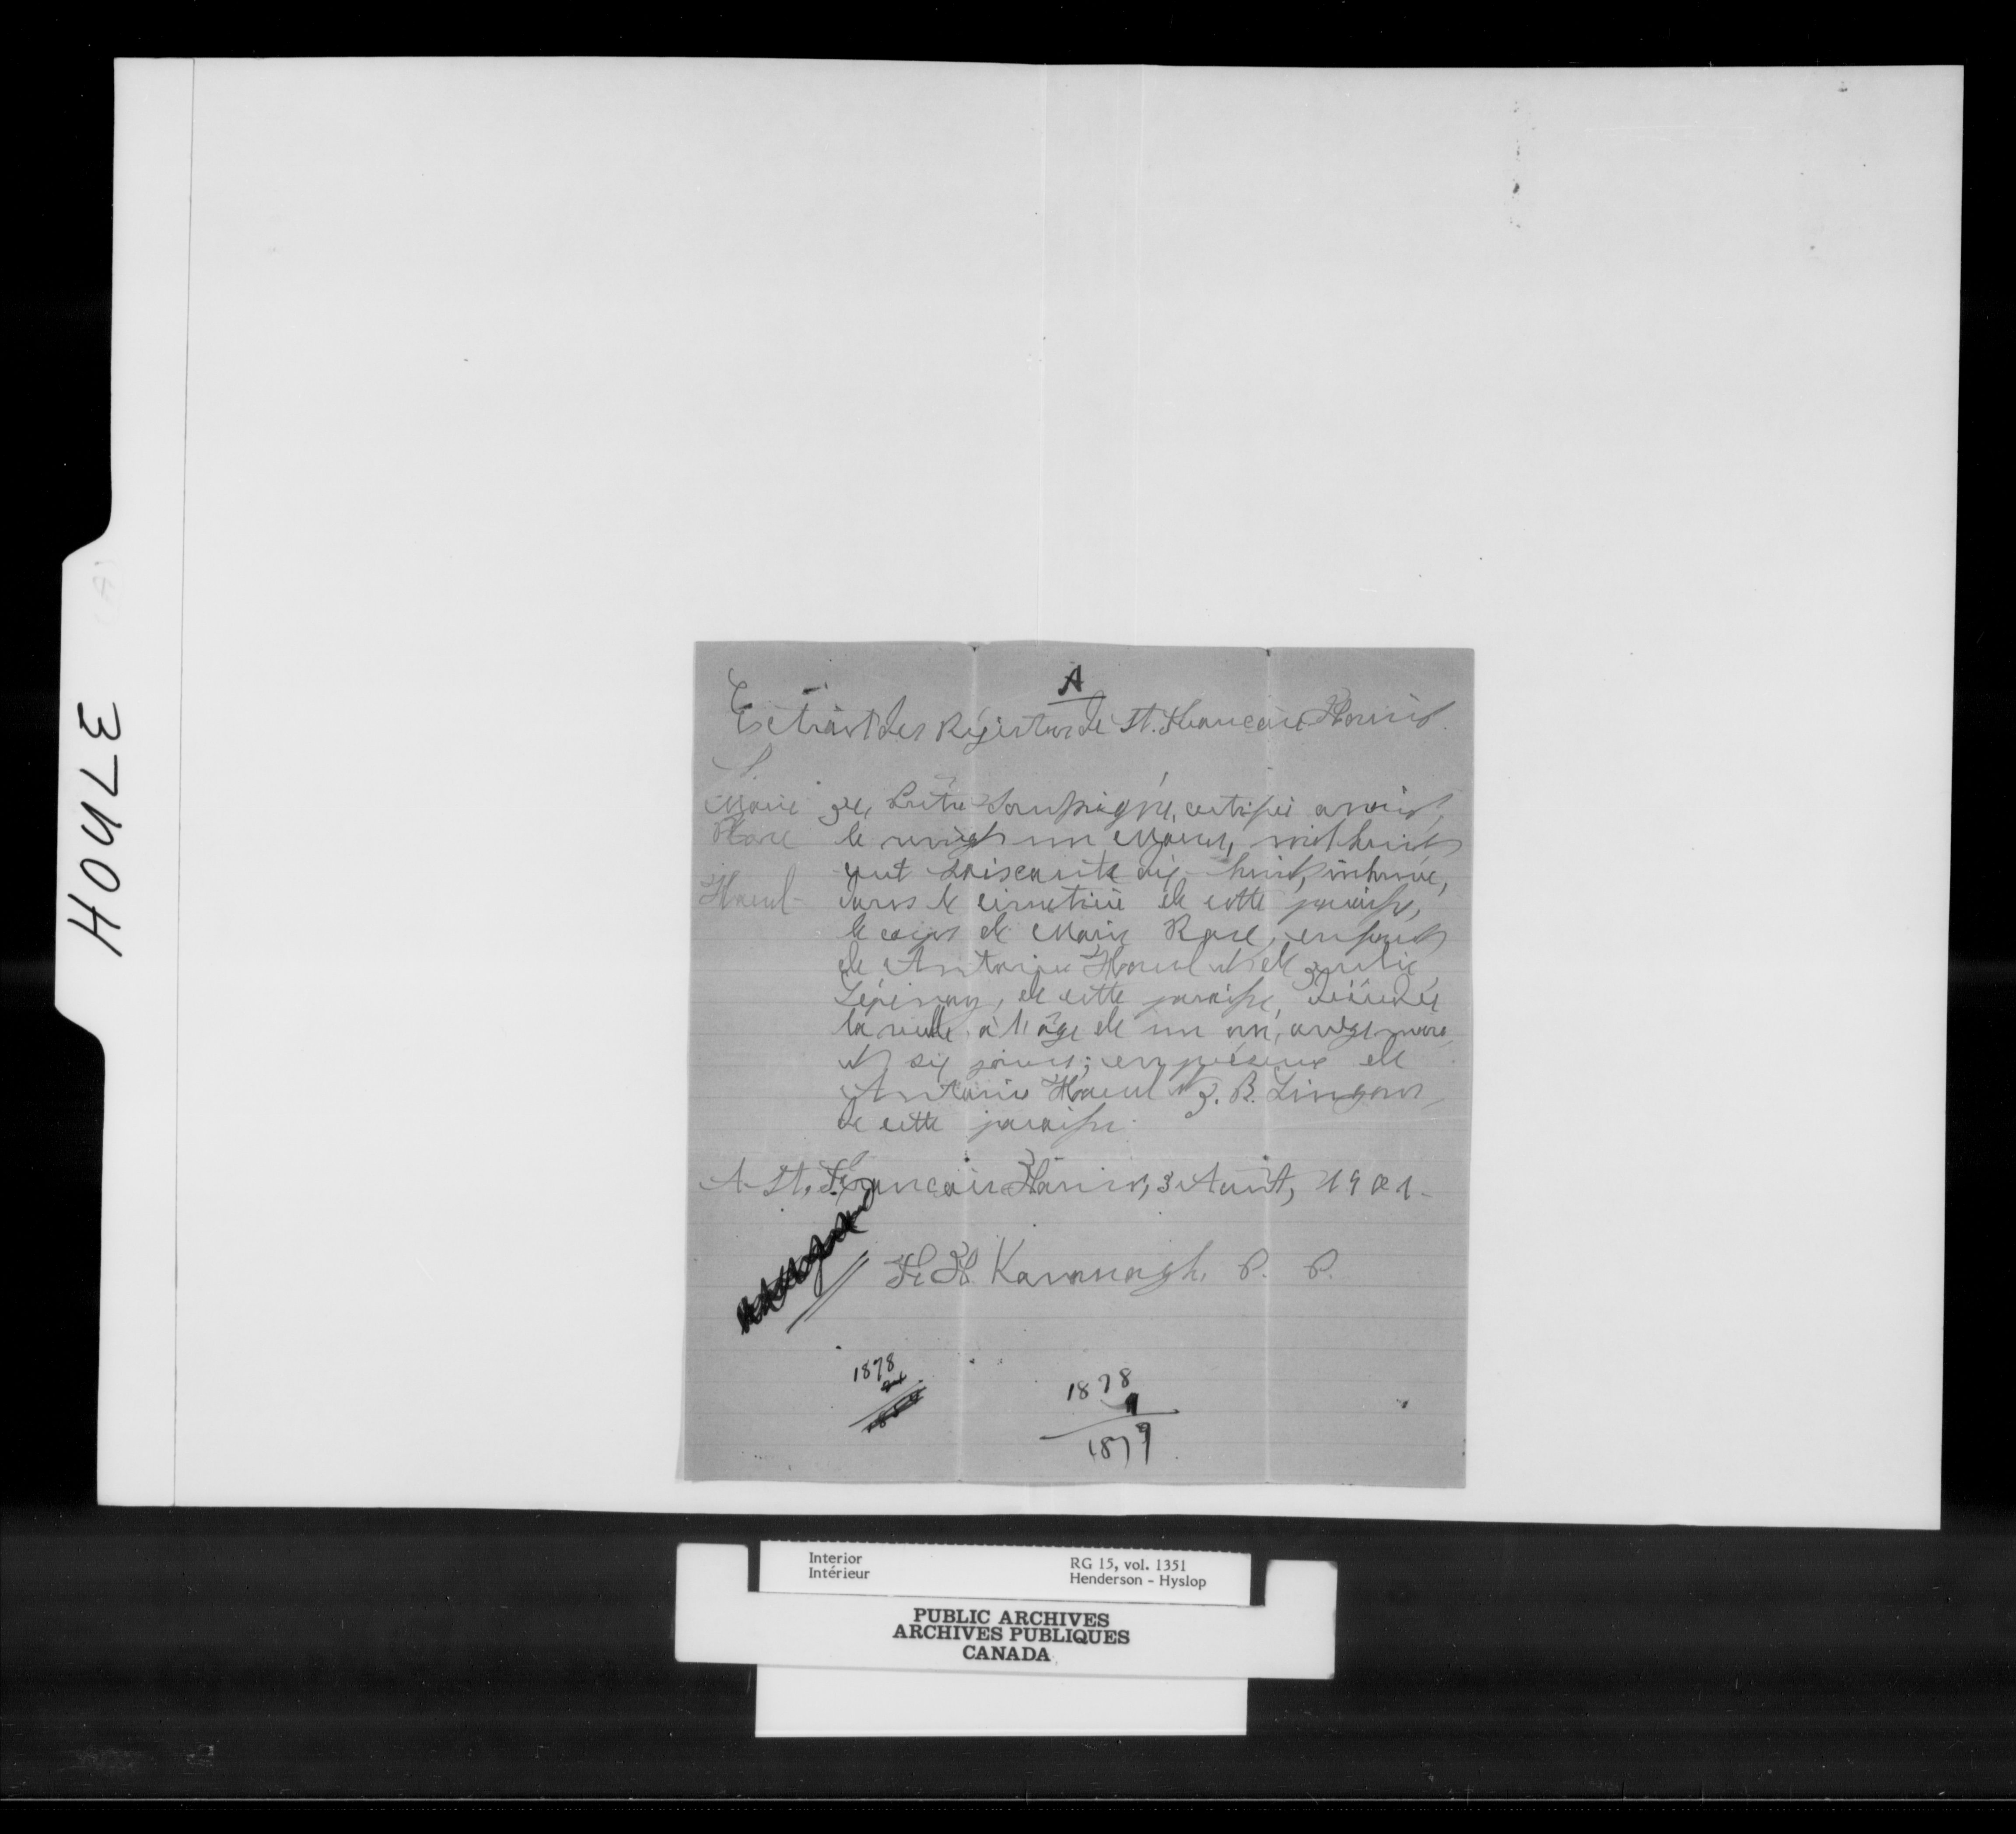 HOULE
A
Extrait des Régistres de St. Francois Xavier.
S.
Marie
Rose
Houl-
Je, Prêtre Soussigné, certifie avoir,
le vingt un Mars, mil huit
cent soixante dix-huit, inhumé,
dans le cimetière de cette paroisse,
le corps de Marie Rose, enfant
de Antoine Houl et de Julie
Lépinay, de cette paroisse, décédée
la veille à l'âge de un an, onze mois
et six jours; en présence de
Antoine Houl et J. B.
de cette paroisse.
A St. Francois Xavier, 3 Août, 1901-
F. X. Kavanagh, P. P.
1878
1878
1
1879
Interior
Intérieur
RG 15, vol. 1351
Henderson - Hyslop
PUBLIC ARCHIVES
ARCHIVES PUBLIQUES
CANADA